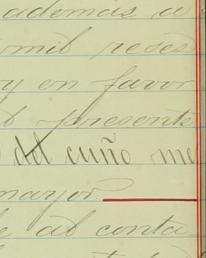 además a
mil reses
y en favor
presente
del cuño me
mayor.
al conta